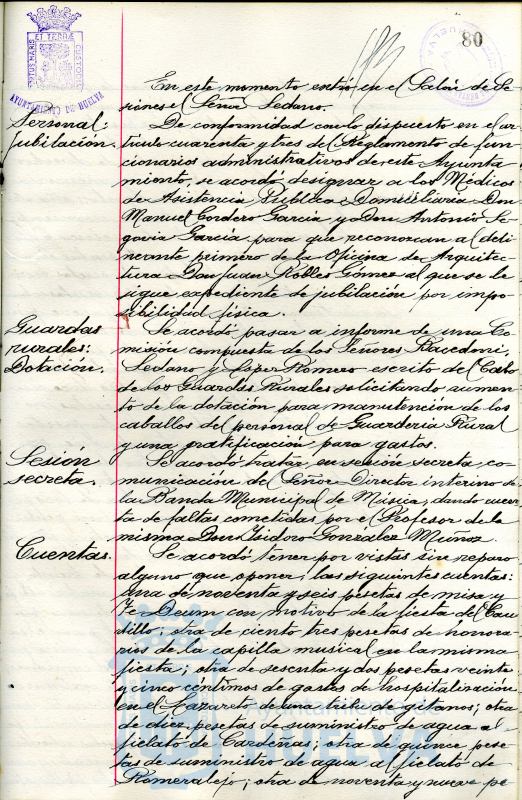 80
PORTUS MARIS ET TERRAE CUSTODIA
AYUNTAMIENTO DE HUELVA
En este momento entró en el Salón de Se-
siones el Señor Sedano.
Personal:
Jubilación.
De conformidad con lo dispuesto en el ar-
tículo cuarenta y tres del Reglamento de fun-
cionarios administrativos de este Ayunta
miento, se acordó designar a los Médicos
de Asistencia Pública Domiciliaria Don
Manuel Cordero García y Don Antonio Se-
govia García para que reconozcan al deli-
nerante primero de la Oficina de Arquitec-
tura Don Juan Robles Gómez al que se le
sigue expediente de jubilación por impo-
sibilidad física.
Guardas
rurales:
Dotación.
Se acordó pasar a informe de una Co-
misión compuesta de los Señores
Sedano y López Romero escrito del Cabo
de los Guardas Rurales solicitando aumen-
to de la dotación para manutención de los
caballos del personal de Guardería Rural
y una gratificación para gastos.
Sesión
secreta.
Se acordó tratar, en sesión secreta, co-
municación del Señor Director interino de
la Banda Municipal de Música, dando cuen-
ta de faltas cometidas por el Profesor de la
misma Don Isidoro Gonzalez Muñoz.
Cuentas.
Se acordó tener por vistas sin reparo
alguno que oponer, las siguientes cuentas:
una de noventa y seis pesetas de misa y
Te Deum con motivo de la fiesta del Cau-
dillo, otra de ciento tres pesetas de honora-
rios de la capilla musical en la misma
fiesta; otra de sesenta y dos pesetas veinte
y cinco céntimos de gastos de hospitalización
en el Lazareto de una tribu de gitanos; otra
de diez pesetas de suministro de agua al
fielato de Cardeñas; otra de quince pese
tas de suministro de agua al fielato de
Romeralejo; otra de noventa y nueve pe
Ayuntamiento
HUELVA